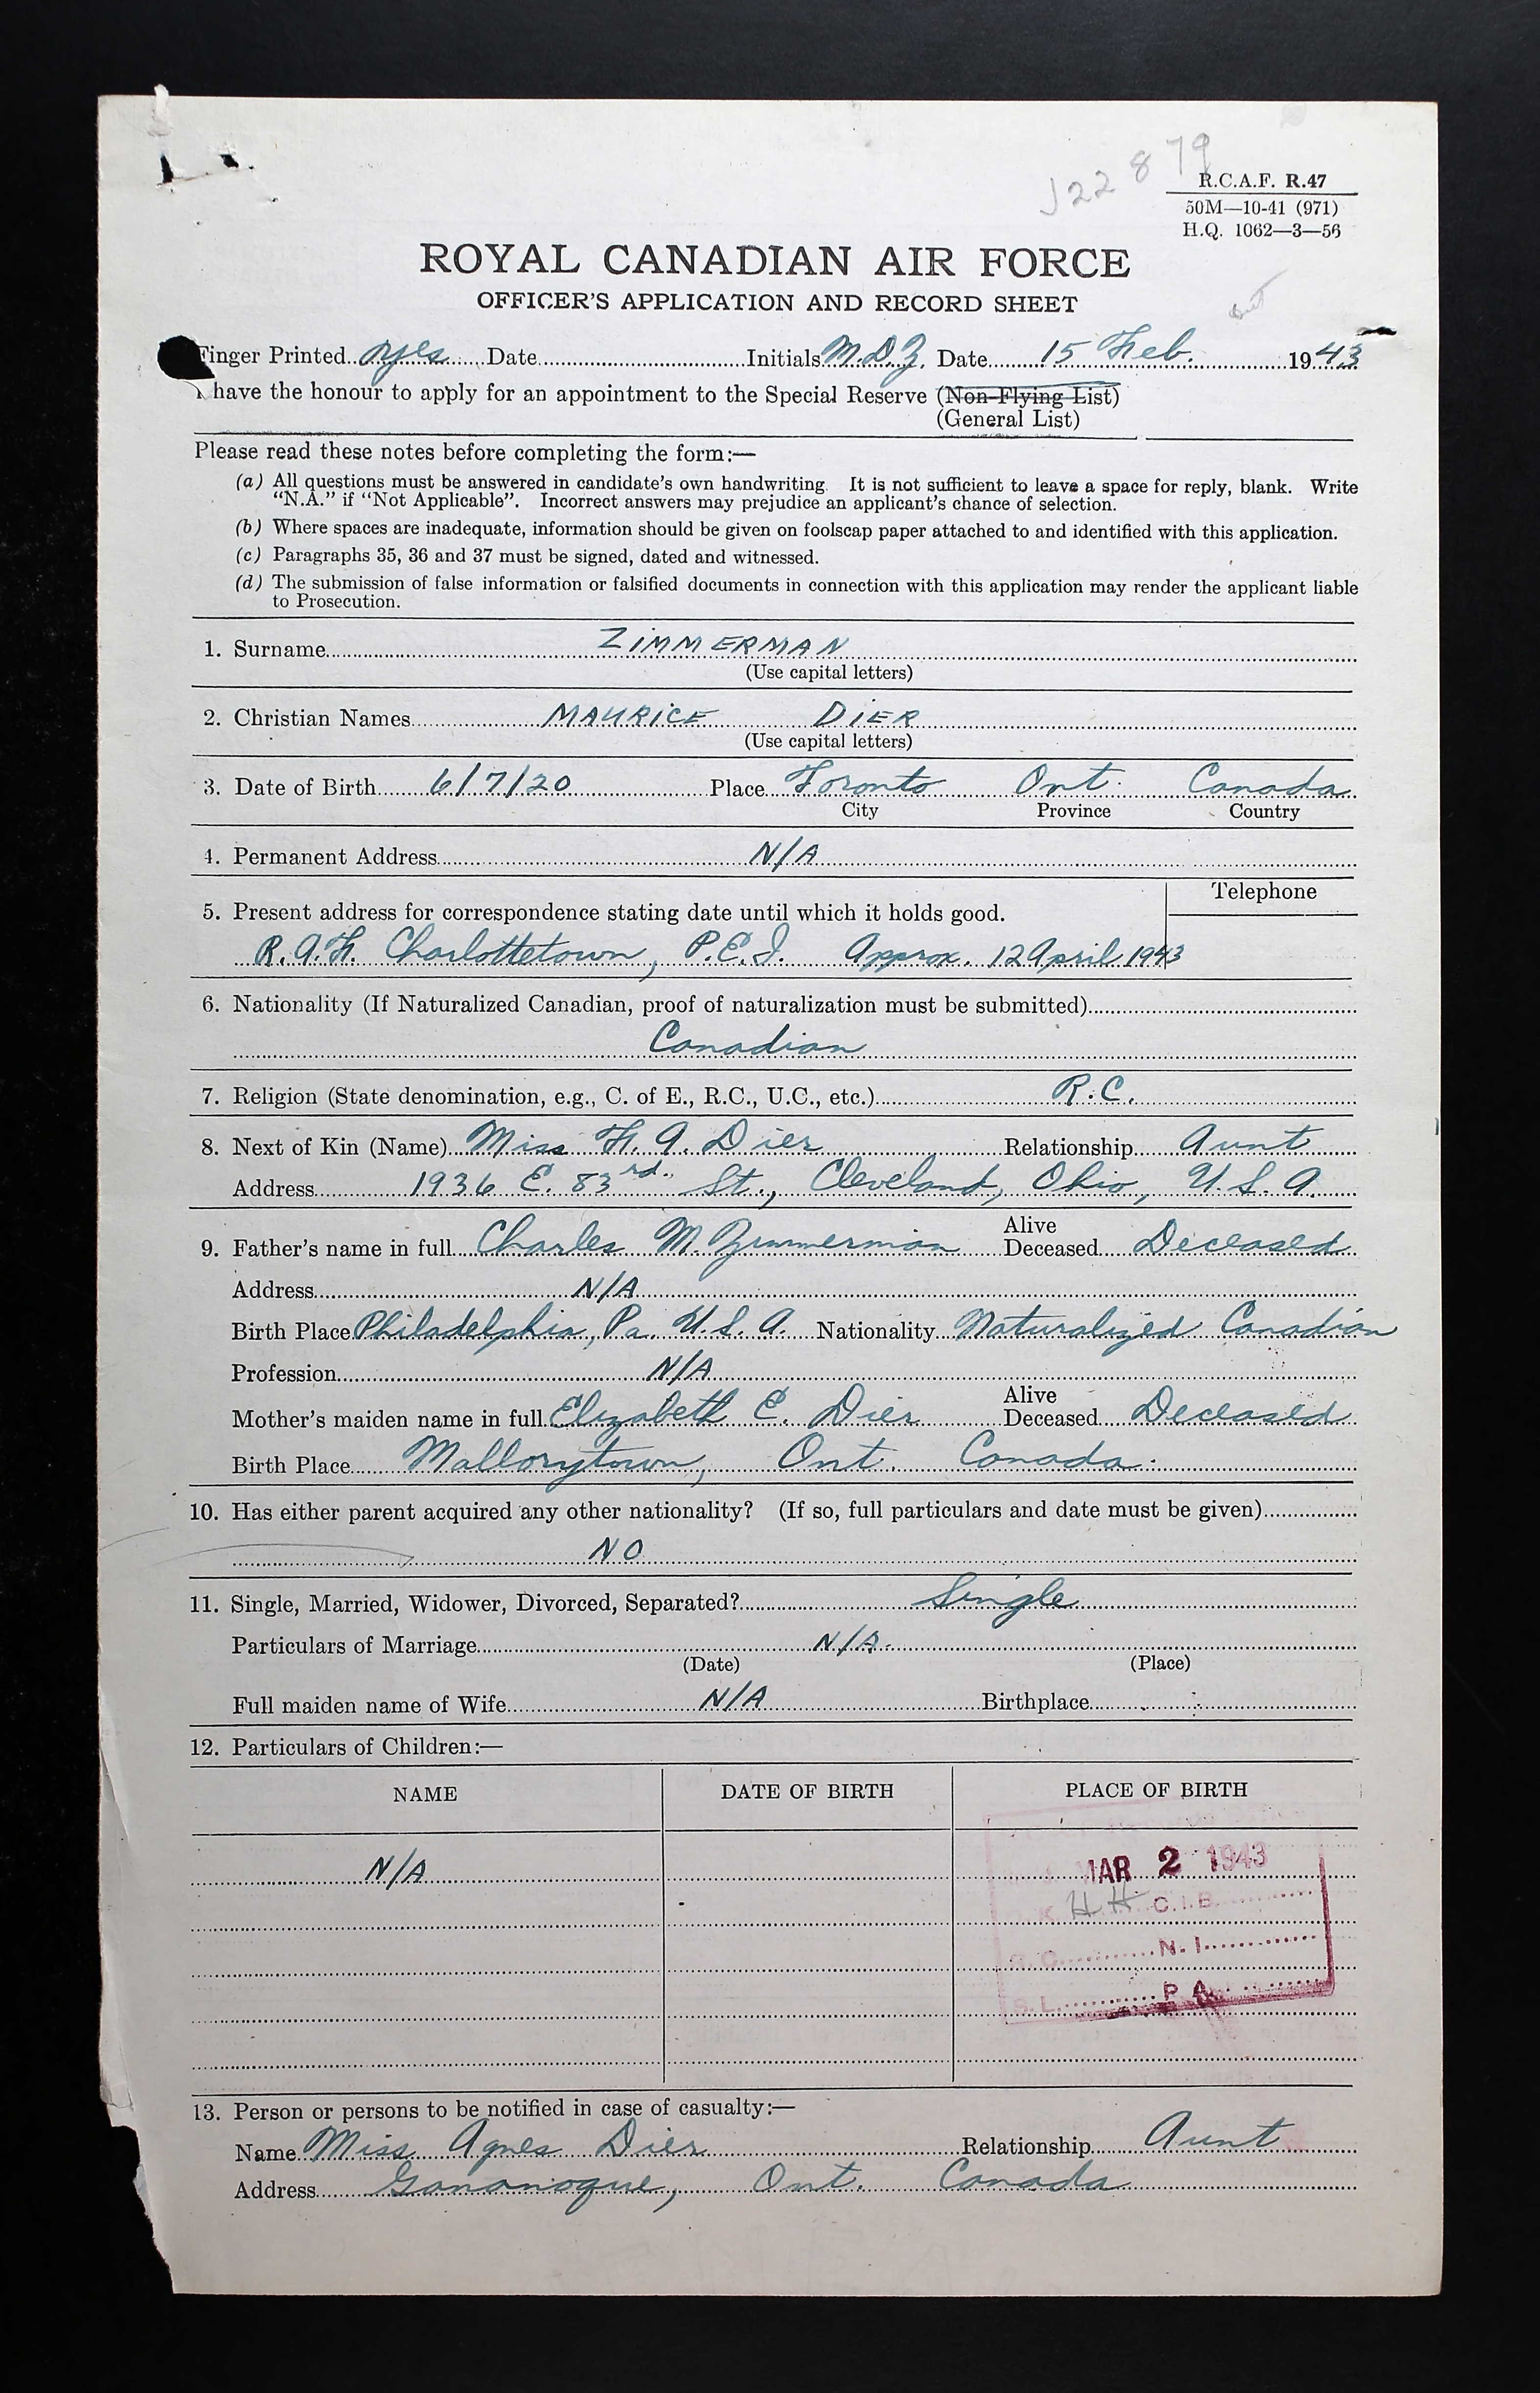 J22879
R.C.A.F. R.47
50M—10-41 (971)
H.Q. 1062—3—56
ROYAL CANADIAN AIR FORCE
OFFICER'S APPLICATION AND RECORD SHEET
Finger Printed yes Date Initials M.D.Z. Date 15 Feb. 1943
I have the honour to apply for an appointment to the Special Reserve (Non-Flying List)
(General List)
Please read these notes before completing the form:—
(a) All questions must be answered in candidate's own handwriting. It is not sufficient to leave a space for reply, blank. Write
"N.A." if "Not Applicable". Incorrect answers may prejudice an applicant's chance of selection.
(b) Where spaces are inadequate, information should be given on foolscap paper attached to and identified with this application.
(c) Paragraphs 35, 36 and 37 must be signed, dated and witnessed.
(d) The submission of false information or falsified documents in connection with this application may render the applicant liable
to Prosecution.
1. Surname ZIMMERMAN
(Use capital letters)
2. Christian Names MAURICE DIER
(Use capital letters)
3. Date of Birth 6/7/20 Place Toronto Ont. Canada
City Province Country
4. Permanent Address N/A
Telephone
5. Present address for correspondence stating date until which it holds good.
R.A.F. Charlottetown, P.E.I. Approx. 12 April 1943
6. Nationality (If Naturalized Canadian, proof of naturalization must be submitted)
Canadian
7. Religion (State denomination, e.g., C. of E., R.C., U.C., etc.) R.C.
8. Next of Kin (Name) Miss F. A. Dier Relationship Aunt
Address 1936 E. 83rd. St., Cleveland, Ohio, U.S.A.
9. Father's name in full Charles M. Zimmerman Alive Deceased Deceased
Address N/A
Birth Place Philadelphia, Pa. U.S.A. Nationality Naturalized Canadian
Profession N/A
Mother's maiden name in full Elizabeth E. Dier Alive Deceased Deceased
Birth Place Mallorytown, Ont. Canada.
10. Has either parent acquired any other nationality? (If so, full particulars and date must be given)
NO
11. Single, Married, Widower, Divorced, Separated? Single
Particulars of Marriage N/A.
(Date) (Place)
Full maiden name of Wife N/A Birthplace
12. Particulars of Children:—
NAME DATE OF BIRTH PLACE OF BIRTH
N/A
MAR 2 1943
K. HH C.I.B.
N.I.
S.L. P.A.
13. Person or persons to be notified in case of casualty:—
Name Miss Agnes Dier Relationship Aunt
Address Gananoque, Ont. Canada